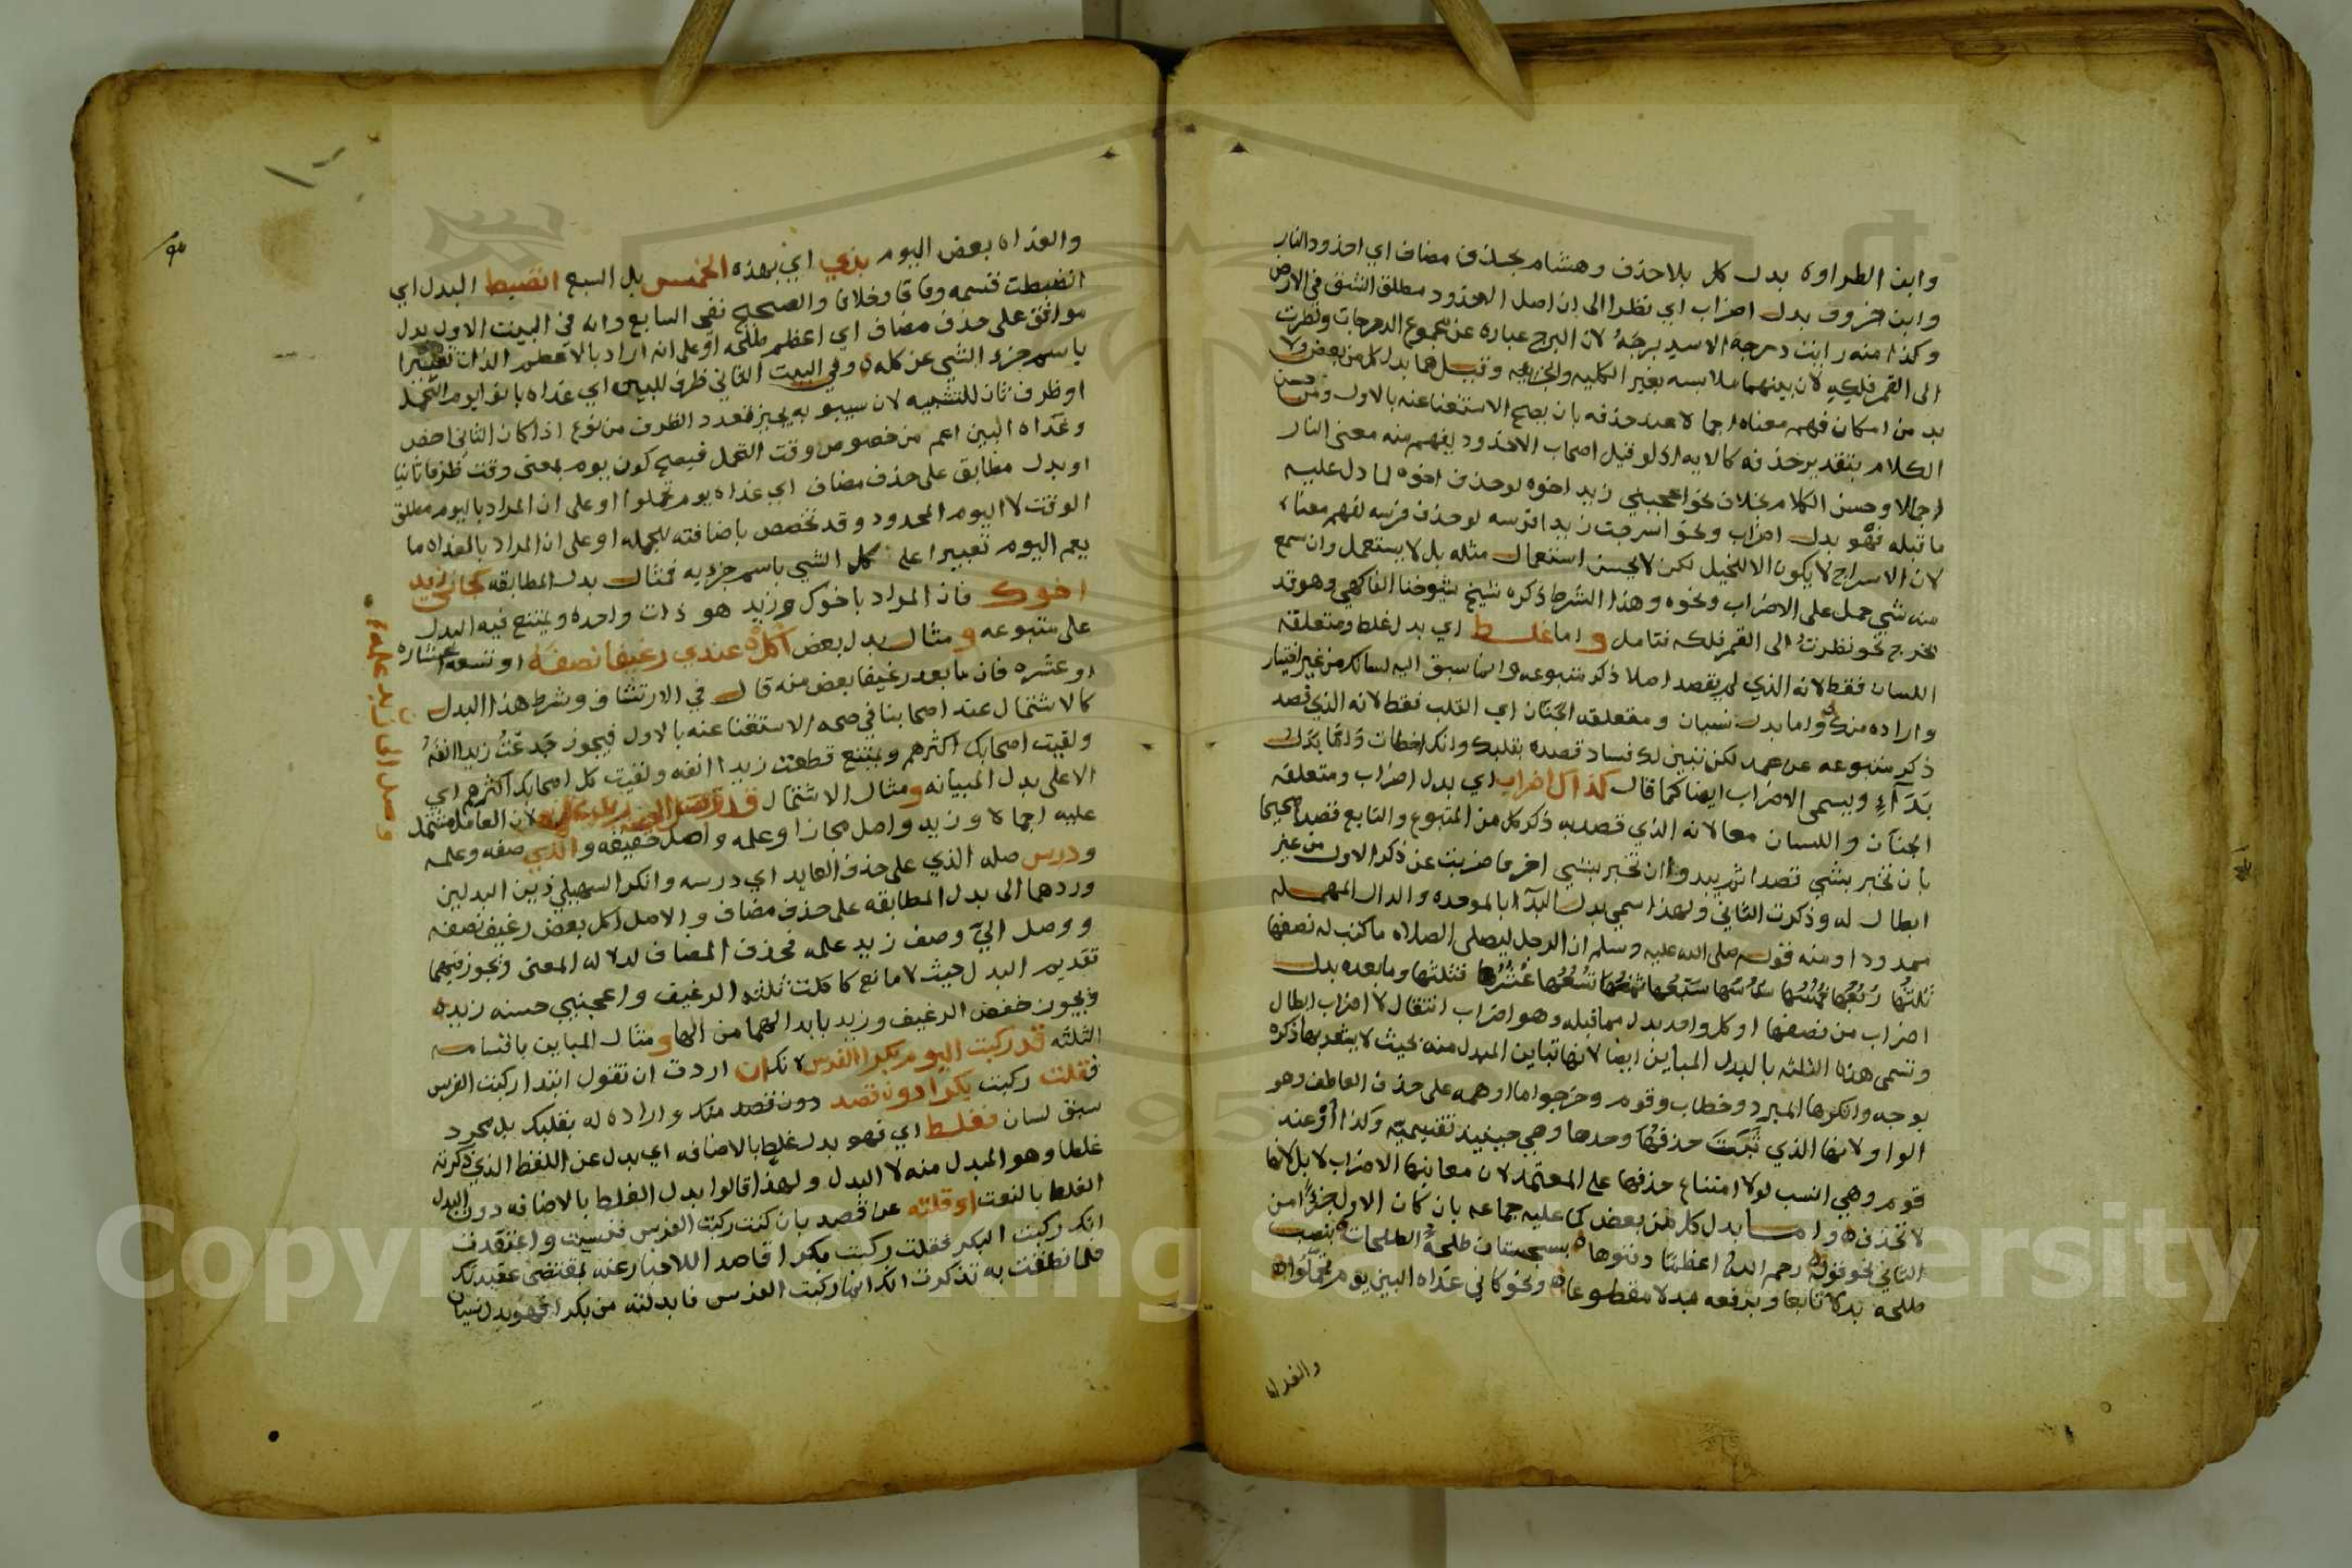 وابن الطراوه بدل كل بلا حذف وهشام بحذف مضاف اي اخدود النار
وابن خروف بدل اضراب اي نظرا الى ان اصل الاخدود مطلق الشق في الارض
وكذا منه رايت درجة الاسد برجَهُ لان البرج عباره عن مجموع الدرجات ونظرت
الى القمر فلكه لان بينهما ملابسه بغير الكليه والجزييه وقيل هما بدل كل من بعض ولا
بد من امكان فهم معناه اجمالا عند حذفه بان يصح الاستغنا عنه بالاول ومن حسن
الكلام بتقدير حذفه كالايه اذ لو قيل اصحاب الاخدود يفهم منه معنى النار
اجمالا وحسن الكلام بخلاف نحو اعجبني زيد اخوه لو حذف اخوه لما دل عليه
ما قبله فهو بدل اضراب ونحو اسرجت زيدا فرسه لو حذف فرسه لفهم معناه
لان الاسراج لا يكون الا للخيل لكن لا يحسن استعمال مثله بل لا يستعمل وان سمع
منه شي حمل على الاضراب ونحوه وهذا الشرط ذكره شيخ شيوخنا الفاكهي وهو قد
يخرج نحو نظرت الى القمر فلكه فتامل و اما غلط اي بدل غلط ومتعلقه
اللسان فقط لانه الذي لم يقصد اصلا ذكر متبوعه وانما سبق اليه لسانك من غير اختيار
واراده منك واما بدل نسيان ومتعلقه الجنان اي القلب فقط لانه الذي قصد
ذكر متبوعه عن عمد لكن تبين لك فساد قصده بقلبك وانك اخطات واما بدل
بَدَآءٍ ويسمى الاضراب ايضا كما قال كذاك اضراب اي بدل اضراب ومتعلقه
الجنان واللسان معا لانه الذي قصد به ذكر كل من المتبوع والتابع قصدا صحيحا
بان تخبر بشي قصدا ثم يبدو ان تخبر بشي اخر فاضربت عن ذكر الاول من غير
ابطال له وذكرت الثاني ولهذا سمي بدل البدآ بالموحده والدال المهمله
ممدودا ومنه قوله صلى الله عليه وسلم ان الرجل ليصلي الصلاه ما كتب له نصفها
ثلثها رُبُعُها خُمُسُها سُدُسُها سُبُعُها ثُمُنُها تُسُعُها عُشْرُها فثلثها وما بعده بدل
اضراب من نصفها او كل واحد بدل مما قبله وهو اضراب انتقال لا اضراب ابطال
وتسمى هذه الثلثه بالبدل المباين ايضا لانها تباين المبدل منه بحيث لا يشعر بها ذكره
بوجه وانكرها المبرد وخطاب وقوم وخرجوا ما اوهمه على حذف العاطف وهو
الواو لانها الذي ثبَتَ حذفُها وحدها وهي حينيذ تقسيميه وكذا أوْ عند
قوم وهي انسب لولا امتناع حذفها على المعتمد لان معانيها الاضراب لا بل لانها
لا تحذف واما بدل كل من بعض كما عليه جماعه بان كان الاول جزءًا من
الثاني نحو قوله رحم الله اعظما دفنوها بسجستان طلحةُ الطلحات بنصب
طلحه بدلا تابعا وبرفعه بدلا مقطوعا ونحو كاني غداه البين يوم تحمّلُوا
والغداه

والغداه بعض اليوم بذي اي بهذه الخمس بل السبع انضبط البدل اي
انضبطت قسمه وفاقا وخلافا والصحيح نفي السابع وانه في البيت الاول بدل
موافق على حذف مضاف اي اعظم طلحه او على انه اراد بالاعظم الذات تعبيرا
باسم جزء الشي عن كله وفي البيت الثاني ظرف للبين اي غداه بانوا يوم التحمل
او ظرف ثان للتشبيه لان سيبويه يجيز تعدد الظرف من نوع اذا كان الثاني اخص
وغداه البين اعم من خصوص وقت التحمل فيصح كون يوم بمعنى وقت ظرفا ثانيا
او بدل مطابق على حذف مضاف اي غداه يوم تحملوا او على ان المراد باليوم مطلق
الوقت لا اليوم المحدود وقد تخصص باضافته للجمله او على ان المراد بالغداه ما
يعم اليوم تعبيرا على كل الشي باسم جزيه فمثال بدل المطابقه كجاني زيد
اخوك فان المراد باخوك وزيد هو ذات واحده ويمتنع فيه البدل
على متبوعه و مثال بدل بعض اكلُ عندي رغيفا نصفه او تسعه اعشاره
او عشره فان ما بعد رغيفا بعض منه قال في الارتشاف وشرط هذا البدل
كالاشتمال عند اصحابنا في صحه الاستغنا عنه بالاول فيجوز جَدعْتُ زيدا انفَهُ
ولقيت اصحابك اكثرهم ويمتنع قطعت زيدا انفه ولقيت كل اصحابك اكثرهم اي
الا على بدل المباينه ومثال الاشتمال قد وصل الي زيد علمه لان العامل مشتمل
عليه اجمالا وزيد واصل مجازا وعلمه واصل حقيقه والذي صفه وعلمه
ودرس صله الذي على حذف العايد اي درسه وانكر السهيلي ذين البدلين
وردهما الى بدل المطابقه على حذف مضاف والاصل اكل بعض رغيف نصفه
ووصل اليّ وصف زيد علمه فحذف المضاف لدلاله المعنى ويجوز فيهما
تقديم البدل حيث لا مانع كاكلت ثلثه الرغيف واعجبني حسنه زيد
ويجوز خفض الرغيف وزيد بابدالهما من الها ومثال المباين باقسامه
الثلثه قد ركبت اليوم بكرا الفرس لانك ان اردت ان تقول ابتدا ركبت الفرس
فقلت ركبت بكرا دون قصد دون قصد منك واراده له بقلبك بل مجرد
سبق لسان فغلط اي فهو بدل غلط بالاضافه اي بدل عن اللفظ الذي ذكرته
غلطا وهو المبدل منه لا البدل ولهذا قالوا بدل الغلط بالاضافه دون البدل
الغلط بالنعت او قلته عن قصد بان كنت ركبت الفرس فنسيت واعتقدت
انك ركبت البكر فقلت ركبت بكرا قاصدا للاخبار عنه بمقتضى عقيدتك
فلما نطقت به تذكرت انك انما ركبت الفرس فابدلته من بكرا فهو بدل نسيان